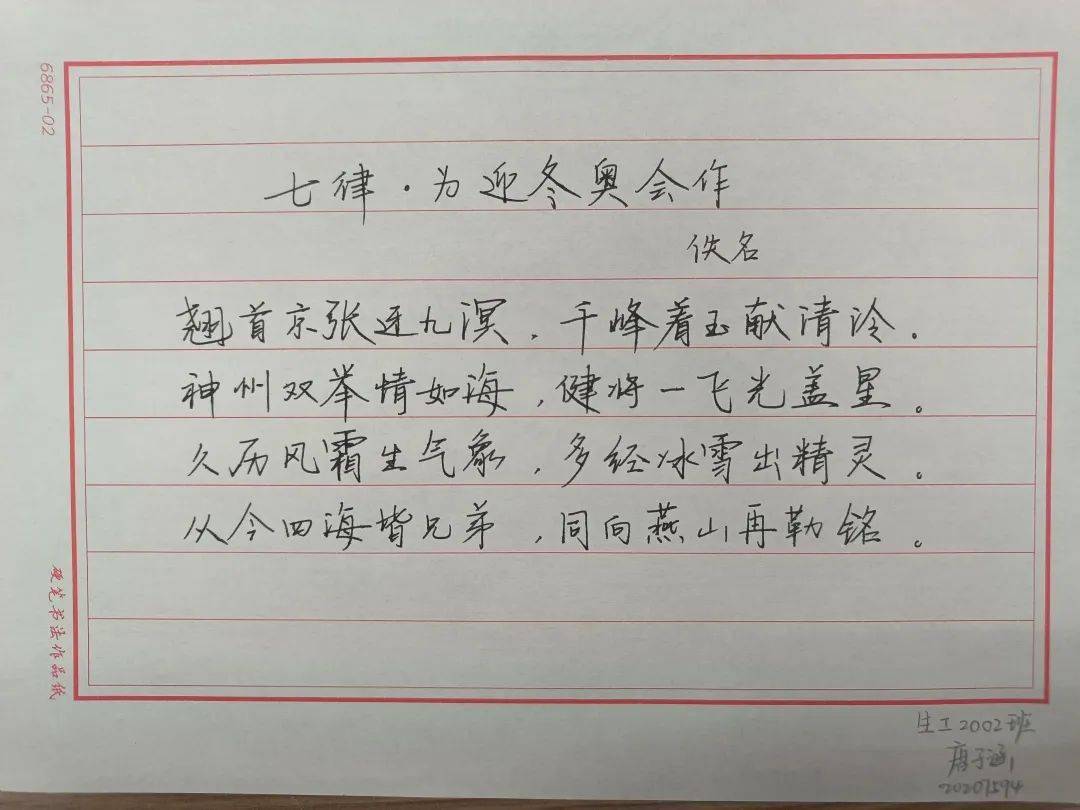 6865-02
七律·为迎冬奥会作
佚名
翘首京张连九溟，千峰着玉献清泠.
神州双举情如海，健将一飞光盖星。
久历风霜生气象，多经冰雪出精灵。
从今四海皆兄弟，同向燕山再勒铭。
硬笔书法作品纸
生工2002班
子涵